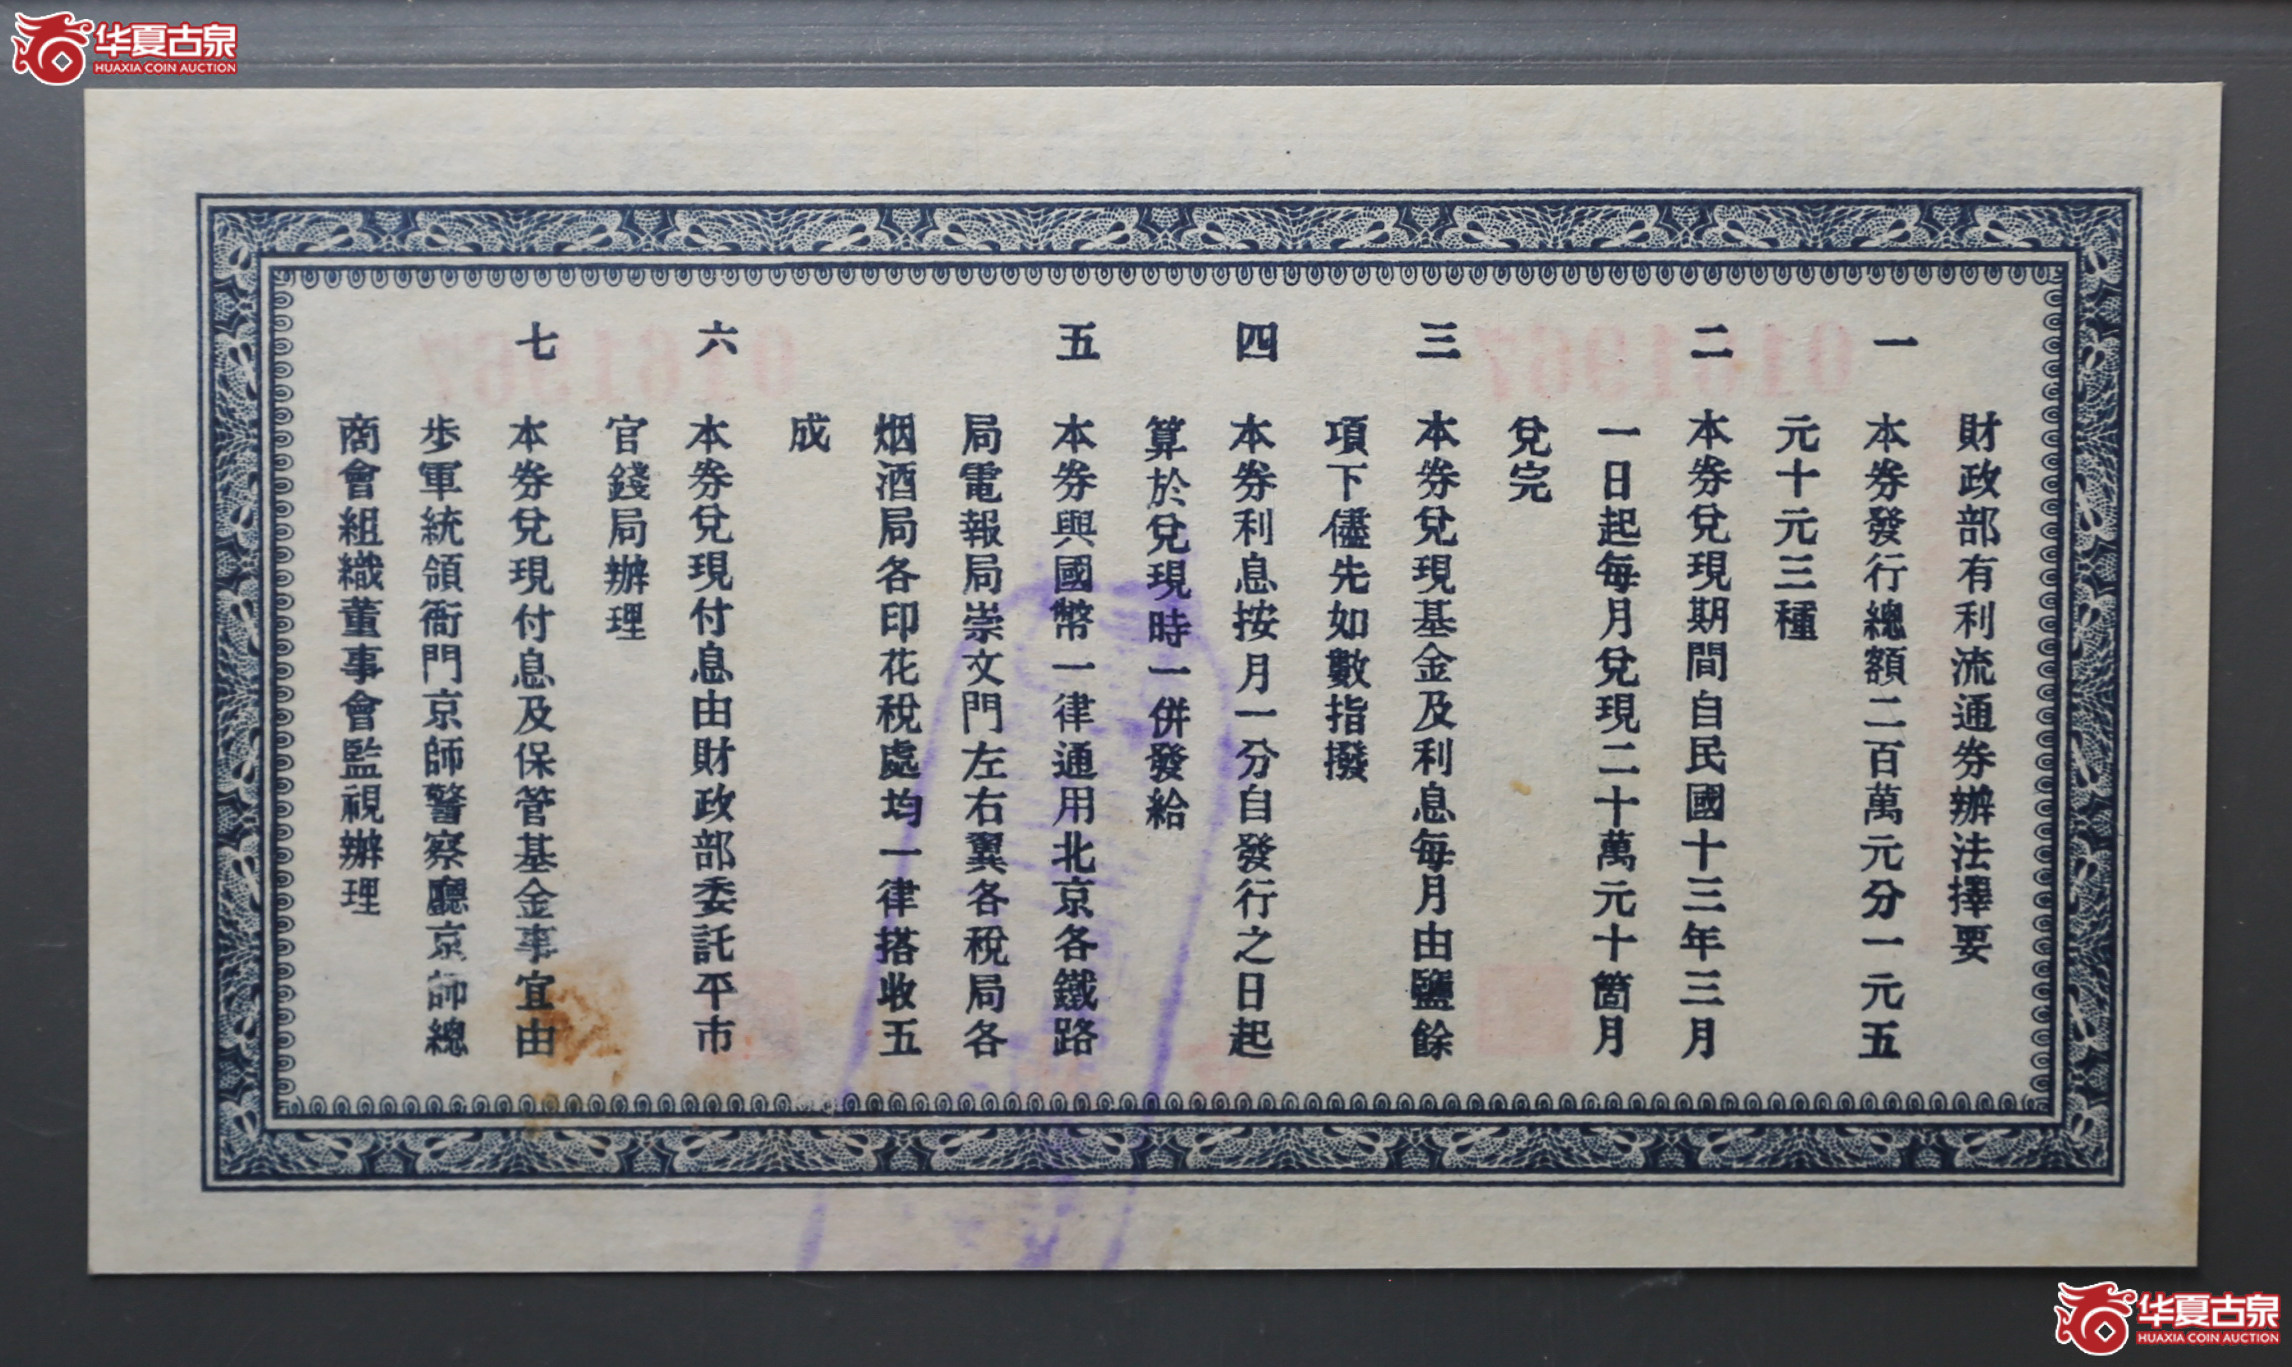 华夏古泉
HUAXIA COIN AUCTION
財政部有利流通券辦法擇要
一 本券發行總額二百萬元分一元五
元十元三種
二 本券兌現期間自民國十三年三月
一日起每月兌現二十萬元十箇月
兌完
三 本券兌現基金及利息每月由鹽餘
項下儘先如數指撥
四 本券利息按月一分自發行之日起
算於兌現時一併發給
五 本券與國幣一律通用北京各鐵路
局電報局崇文門左右翼各稅局各
烟酒局各印花稅處均一律搭收五
成
六 本券兌現付息由財政部委託平市
官錢局辦理
七 本券兌現付息及保管基金事宜由
步軍統領衙門京師警察廳京師總
商會組織董事會監視辦理
0161967
0161967
华夏古泉
HUAXIA COIN AUCTION